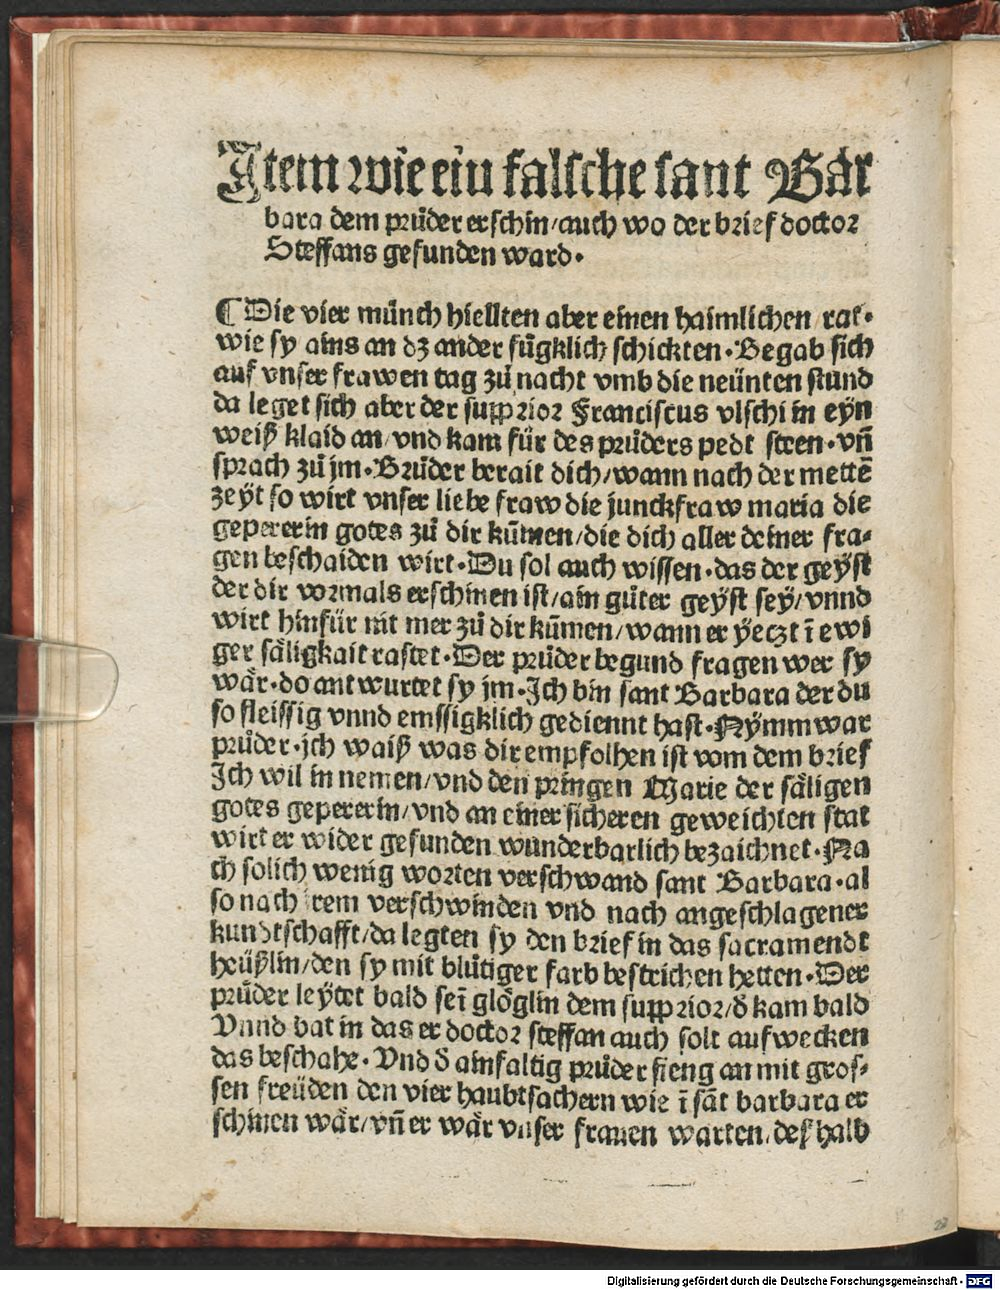 Item wie ein falsche sant Bar
bara dem průder erschin/auch wo der brief doctor
Steffans gefunden ward.
¶ Die vier münch hiellten aber einen haimlichen rat.
wie sy ains an dz ander fůgklich schickten. Begab sich
auf vnser frawen tag zů nacht vmb die neünten stund
da leget sich aber der supprior Franciscus vlschi in eyn
weiß klaid an/vnd kam für des průders pedt steen. vñ
sprach zů jm. Brůder berait dich/wann nach der mettē
zeÿt so wirt vnser liebe fraw die junckfraw maria die
gepererin gotes zů dir kūmen/die dich aller deiner fra⸗
gen beschaiden wirt. Du sol auch wissen. das der geÿst
der dir vormals erschinen ist/ain gůter geÿst seÿ/vnnd
wirt hinfür nit mer zů dir kūmen/wann er ÿeczt ī ewi
ger säligkait rastet. Der průder begund fragen wer sy
wär. do antwurtet sy jm. Ich bin sant Barbara der du
so fleissig vnnd emssigklich gediennt hast. Nÿmm war
průder. ich waiß was dir empfolhen ist vom dem brief
Ich wil in nemen/vnd den pringen Marie der säligen
gotes gepererin/vnd an einer sicheren geweichten stat
wirt er wider gefunden wunderbarlich bezaichnet. Na
ch solich wenig worten verschwand sant Barbara. al
so nach irem verschwinden vnd nach angeschlagener
kundtschafft/da legten sy den brief in das sacramendt
heüßlin/den sy mit blůtiger farb bestrichen hetten. Der
průder leÿtet bald seī glöglin dem supprior/d̄ kam bald
Vnnd bat in das er doctor steffan auch solt aufwecken
das beschahe. Vnd d̄ ainfaltig průder fieng an mit gros⸗
sen freüden den vier haubtsachern wie ī sāt barbara er
schinen wär/vñ er wär vnser frauen warten/deßhalb
22
Digitalisierung gefördert durch die Deutsche Forschungsgemeinschaft - DFG